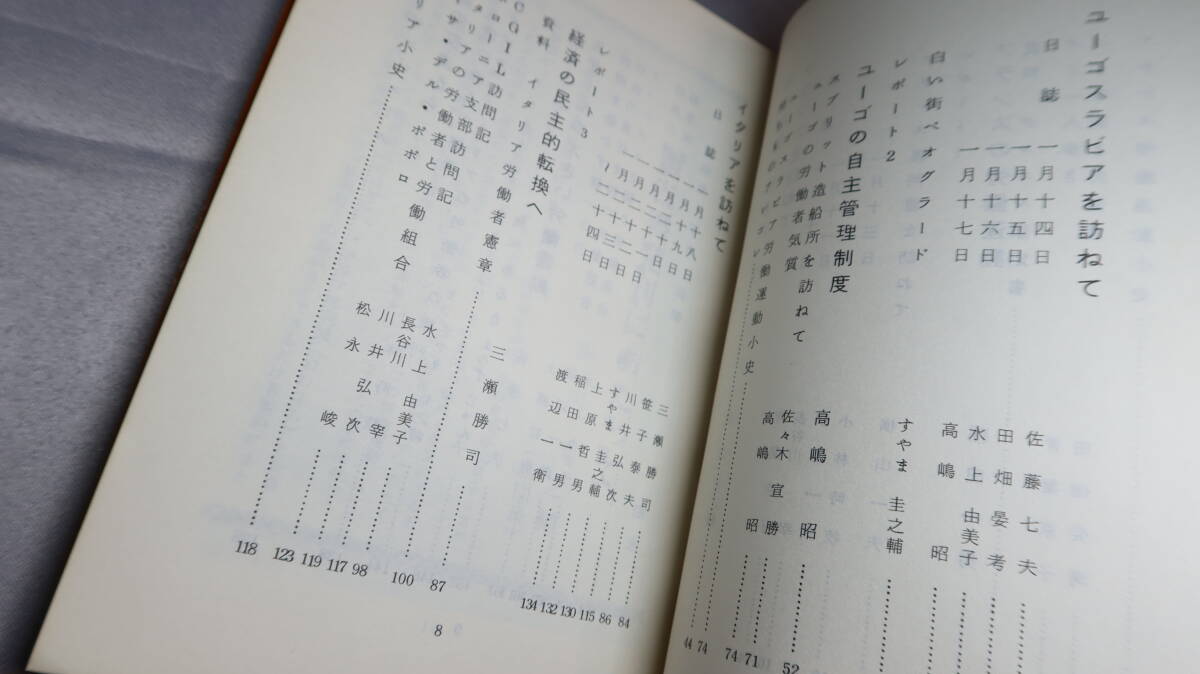 ユーゴスラビアを訪ねて
日誌
一月十四日 佐藤七夫
一月十五日 田畑晏考
一月十六日 水上由美子
一月十七日 高嶋昭
白い街ベオグラード すやま圭之輔
レポート2
ユーゴの自主管理制度 高嶋昭 52
スプリット造船所を訪ねて 佐々木宣勝 71
ユーゴの労働者気質 高嶋昭 74
労働運動小史 74
44
イタリアを訪ねて
日誌
一月十八日 三瀬勝司 84
一月十九日 笹子泰夫 86
一月二十日 川井弘次 115
すやま圭之輔 130
上原哲男 132
稲田一男 134
渡辺一衛
レポート3
経済の民主的転換へ 三瀬勝司 87
資料 イタリア労働者憲章 100
CGIL訪問記 水上由美子 98
支部訪問記 長谷川宰 117
川井弘次 119
松永峻 123
リア小史 118
8